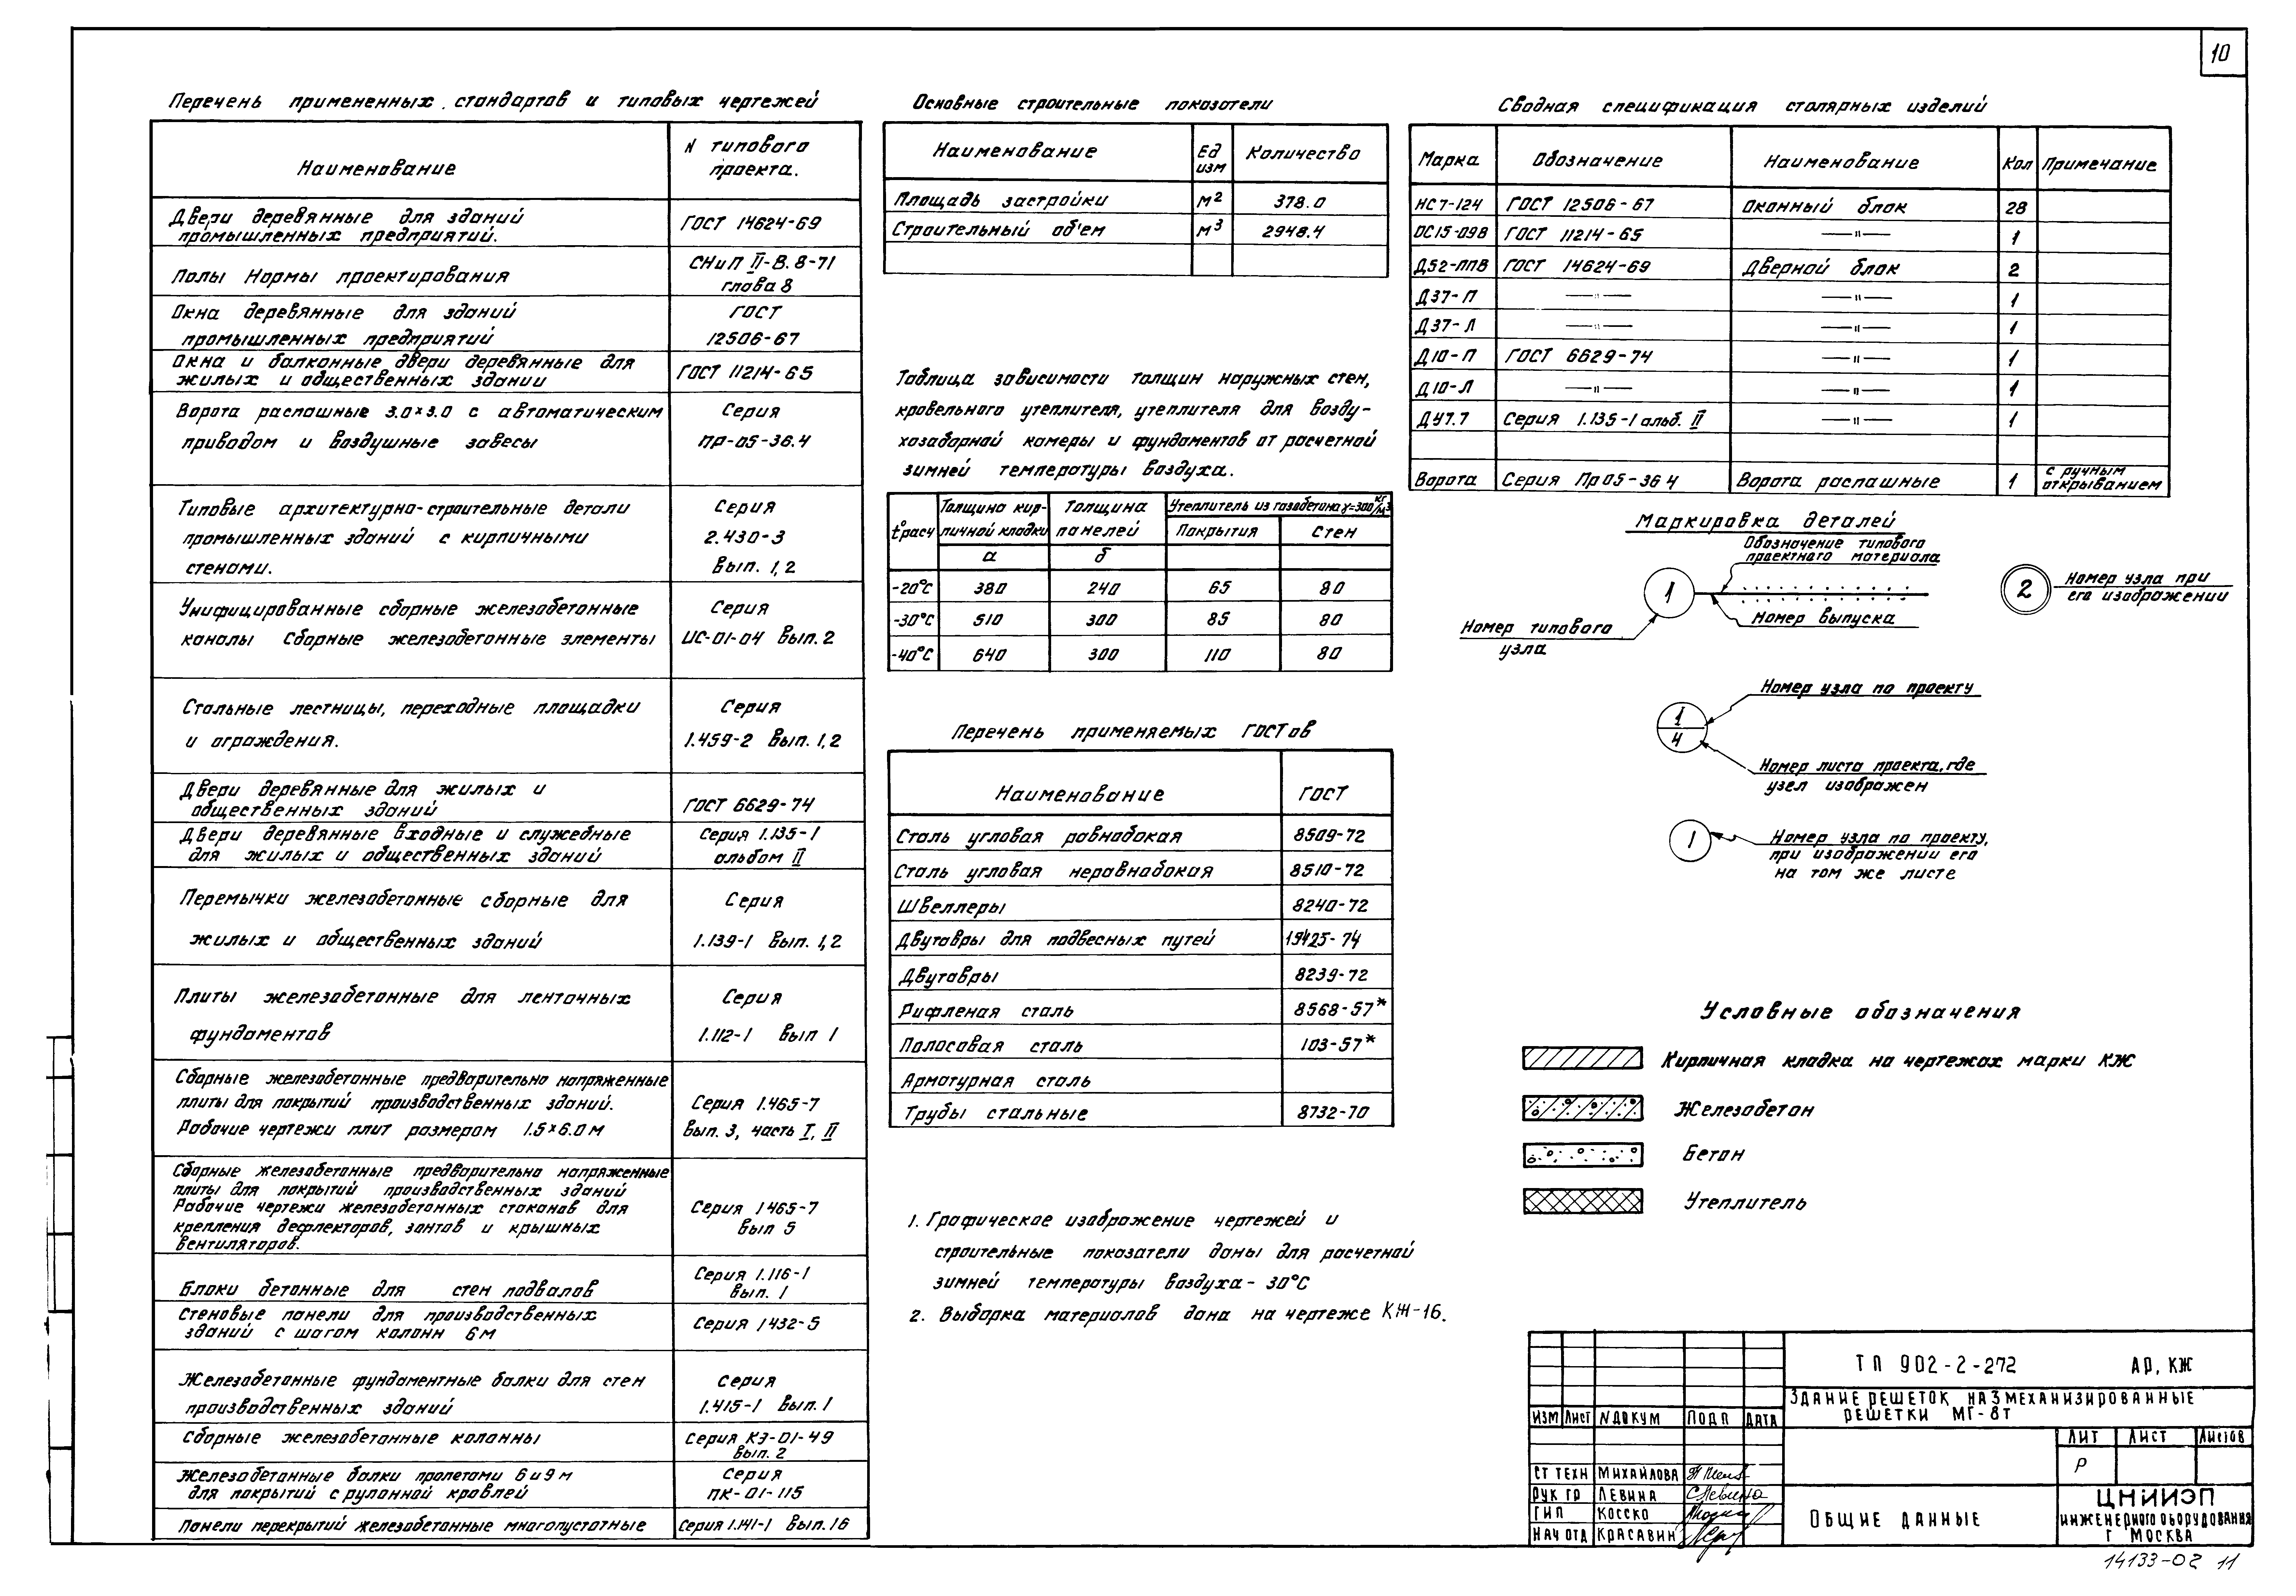 10
Перечень примененных стандартов и типовых чертежей
Наименование
N типового
проекта.
Двери деревянные для зданий
промышленных предприятий.
ГОСТ 14624-69
Полы Нормы проектирования
СНиП II-В. 8-71
глава 8
Окна деревянные для зданий
промышленных предприятий
ГОСТ
12506-67
Окна и балконные двери деревянные для
жилых и общественных здании
ГОСТ 11214-65
Ворота распашные 3.0×3.0 с автоматическим
приводом и воздушные завесы
Серия
ПР-05-36.4
Типовые архитектурно-строительные детали
промышленных зданий с кирпичными
стенами.
Серия
2.430-3
Вып. 1,2
Унифицированные сборные железобетонные
каналы Сборные железобетонные элементы
Серия
ИС-01-04 Вып. 2
Стальные лестницы, переходные площадки
и ограждения.
Серия
1.459-2 Вып. 1,2
Двери деревянные для жилых и
общественных зданий
ГОСТ 6629-74
Двери деревянные входные и служебные
для жилых и общественных зданий
Серия 1.135-1
альбом II
Перемычки железобетонные сборные для
жилых и общественных зданий
Серия
1.139-1 Вып. 1,2
Плиты железобетонные для ленточных
фундаментов
Серия
1.112-1 Вып 1
Сборные железобетонные предварительно напряженные
плиты для покрытий производственных зданий.
Рабочие чертежи плит размером 1.5×6.0 м
Серия 1.465-7
Вып. 3, часть I, II
Сборные железобетонные предварительно напряженные
плиты для покрытий производственных зданий
Рабочие чертежи железобетонных стаканов для
крепления дефлекторов, зонтов и крышных
вентиляторов.
Серия 1465-7
Вып 5
Блоки бетонные для стен подвалов
Серия 1.116-1
Вып. 1
Стеновые панели для производственных
зданий с шагом колонн 6м
Серия 1432-5
Железобетонные фундаментные балки для стен
производственных зданий
Серия
1.415-1 Вып. 1
Сборные железобетонные колонны
Серия КЭ-01-49
Вып. 2
Железобетонные балки пролетами 6 и 9 м
для покрытий с рулонной кровлей
Серия
ПК-01-115
Панели перекрытий железобетонные многопустотные
Серия 1.141-1 Вып. 16
Основные строительные показатели
Наименование
Ед
изм
Количество
Площадь застройки м² 378.0
Строительный об'ем м³ 2948.4
Таблица зависимости толщин наружных стен,
кровельного утеплителя, утеплителя для возду-
хозаборной камеры и фундаментов от расчетной
зимней температуры воздуха.
t°расч
Толщина кир-
пичной кладки
а
Толщина
панелей
б
Утеплитель из газобетона γ=300 кг/м³
Покрытия Стен
-20°С 380 240 65 80
-30°С 510 300 85 80
-40°С 640 300 110 80
Перечень применяемых ГОСТов
Наименование ГОСТ
Сталь угловая равнобокая 8509-72
Сталь угловая неравнобокая 8510-72
Швеллеры 8240-72
Двутавры для подвесных путей 19425-74
Двутавры 8239-72
Рифленая сталь 8568-57*
Полосовая сталь 103-57*
Арматурная сталь
Трубы стальные 8732-70
1. Графическое изображение чертежей и
строительные показатели даны для расчетной
зимней температуры воздуха - 30°С
2. Выборка материалов дана на чертеже КЖ-16.
Сводная спецификация столярных изделий
Марка Обозначение Наименование Кол Примечание
НС7-124 ГОСТ 12506-67 Оконный блок 28
ОС15-09В ГОСТ 11214-65 —"— 1
Д52-ППВ ГОСТ 14624-69 Дверной блок 2
Д37-П —"— —"— 1
Д37-Л —"— —"— 1
Д10-П ГОСТ 6629-74 —"— 1
Д10-Л —"— —"— 1
ДУ7.7 Серия 1.135-1 альб. II —"— 1
Ворота Серия Пр 05-36 4 Ворота распашные 1 с ручным
открыванием
Маркировка деталей
Обозначение типового
проектного материала
1
Номер выпуска
Номер типового
узла
2
Номер узла при
его изображении
Номер узла по проекту
1
4
Номер листа проекта, где
узел изображен
1
Номер узла по проекту,
при изображении его
на том же листе
Условные обозначения
Кирпичная кладка на чертежах марки КЖ
Железобетон
Бетон
Утеплитель
ТП 902-2-272 АР, КЖ
Здание решеток на 3 механизированные
решетки МГ-8т
Изм Лист N докум Подп Дата
Лит Лист Листов
Р
Ст техн Михайлова
Рук гр Левина
Гип Косско
Нач отд Красавин
Общие данные
ЦНИИЭП
инженерного оборудования
г Москва
14133-02 11